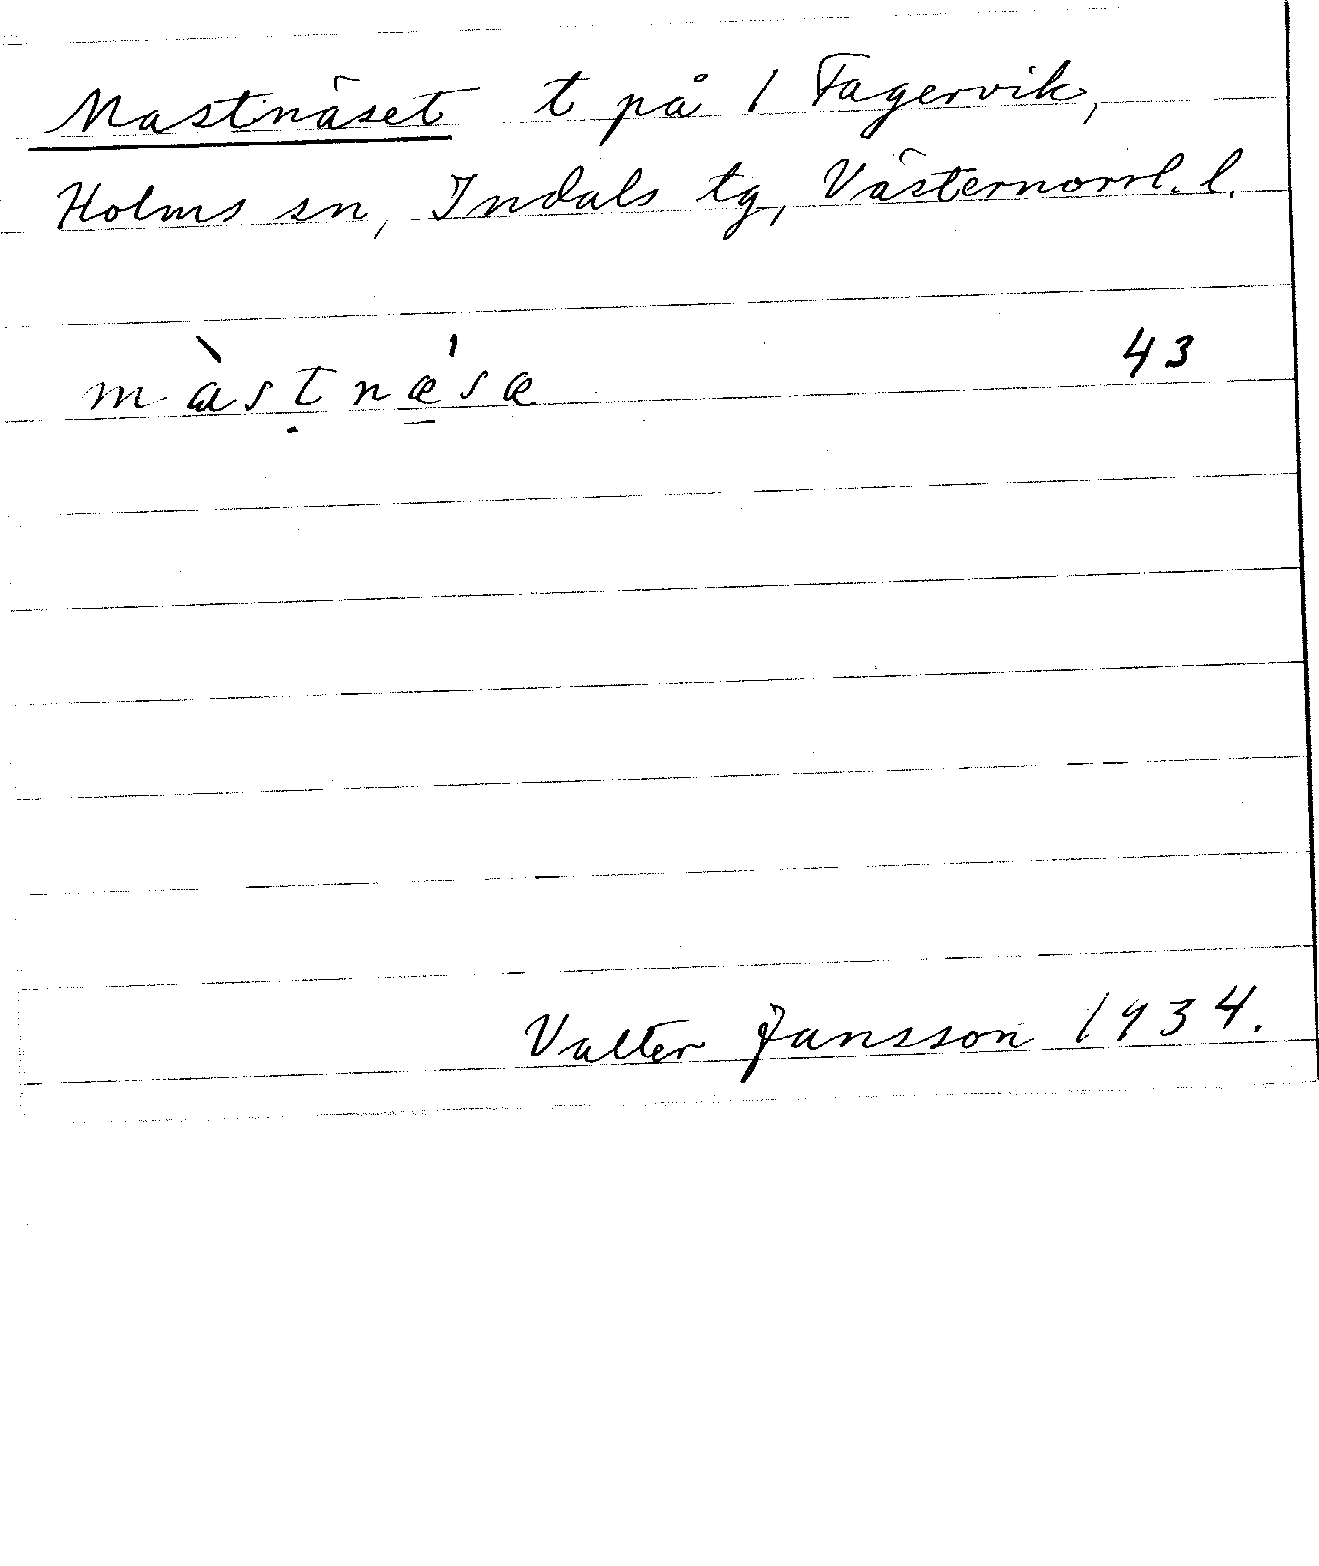 Mastnäset t på 1 Fagervik,
Holms sn, Indals tg, Västernorrl. l.
màsṭnǽ̱sæ 43
Valter Jansson 1934.